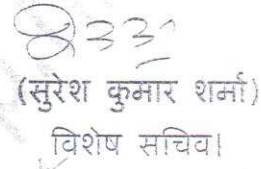 (सुरेश कुमार शर्मा)
विशेष सचिव।